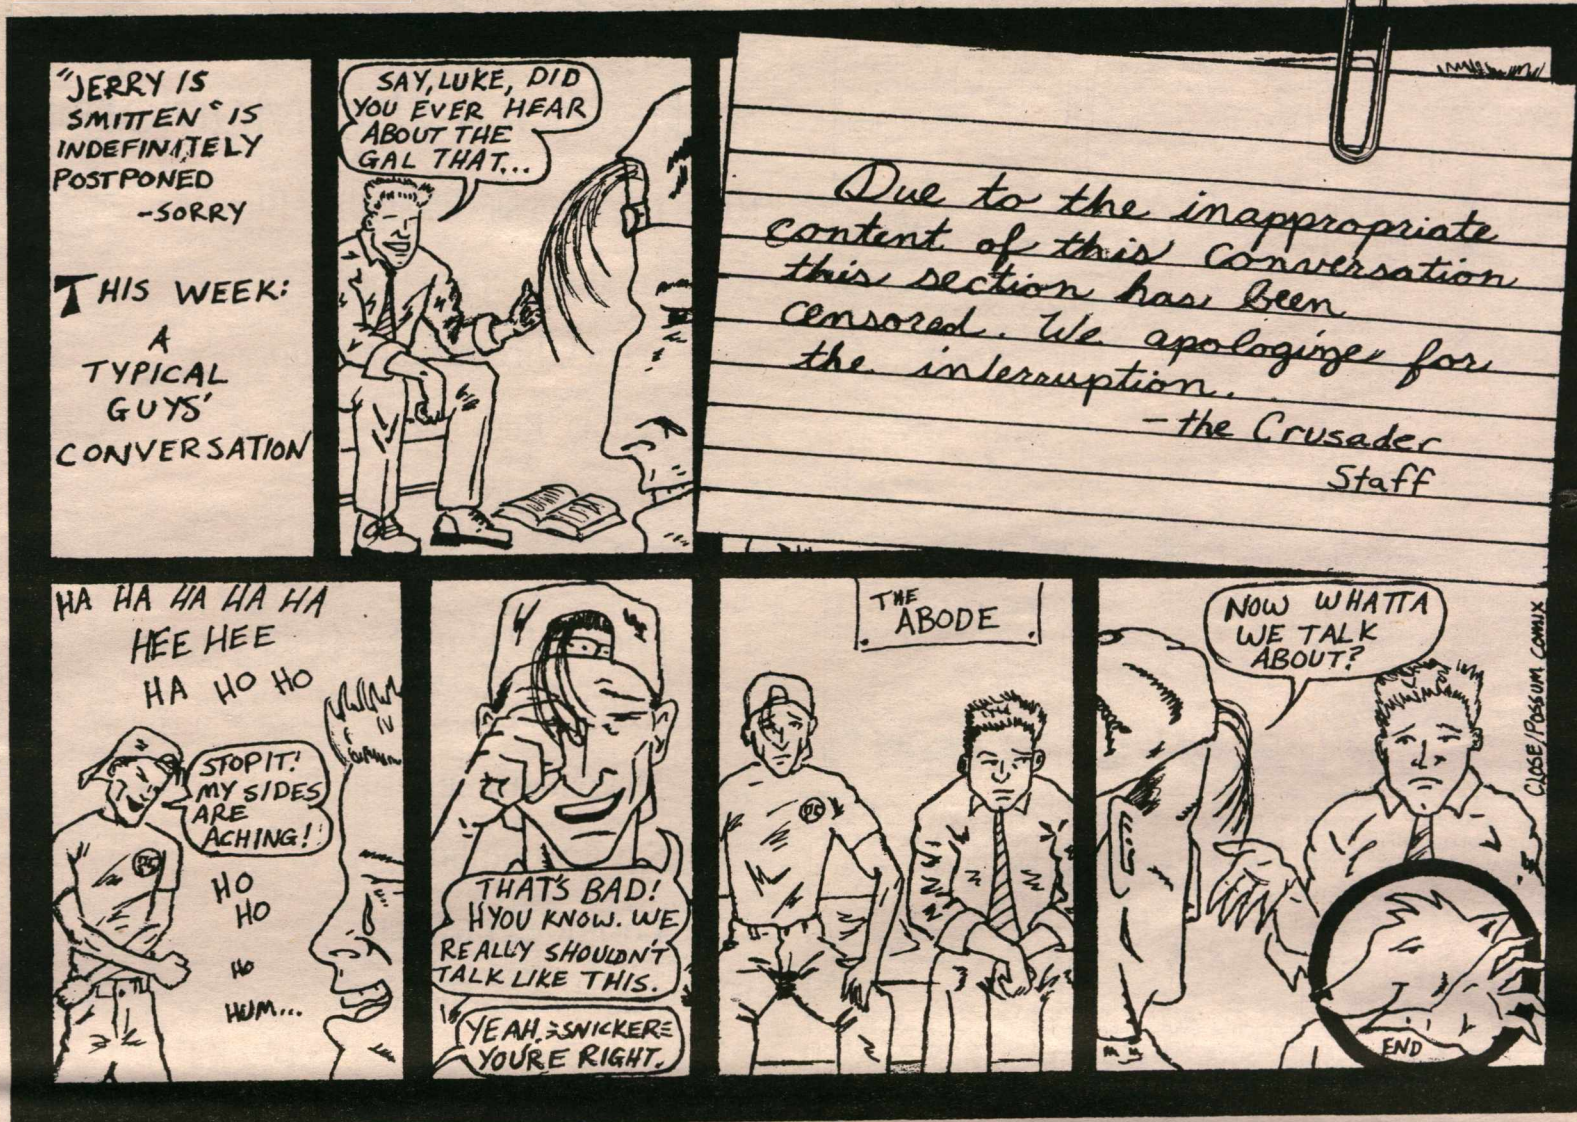 "JERRY IS
SMITTEN" IS
INDEFINITELY
POSTPONED
-SORRY
THIS WEEK:
A
TYPICAL
GUYS'
CONVERSATION
SAY, LUKE, DID
YOU EVER HEAR
ABOUT THE
GAL THAT...
Due to the inappropriate
content of this conversation
this section has been
censored. We apologize for
the interruption.
- the Crusader
Staff
HA HA HA HA HA
HEE HEE
HA HO HO
STOP IT!
MY SIDES
ARE
ACHING!
HO
HO
HO
HUM...
THAT'S BAD!
HYOU KNOW. WE
REALLY SHOULDN'T
TALK LIKE THIS.
YEAH. SNICKER
YOU'RE RIGHT.
THE
ABODE
NOW WHATTA
WE TALK
ABOUT?
CLOSE/POSSUM COMIX
END